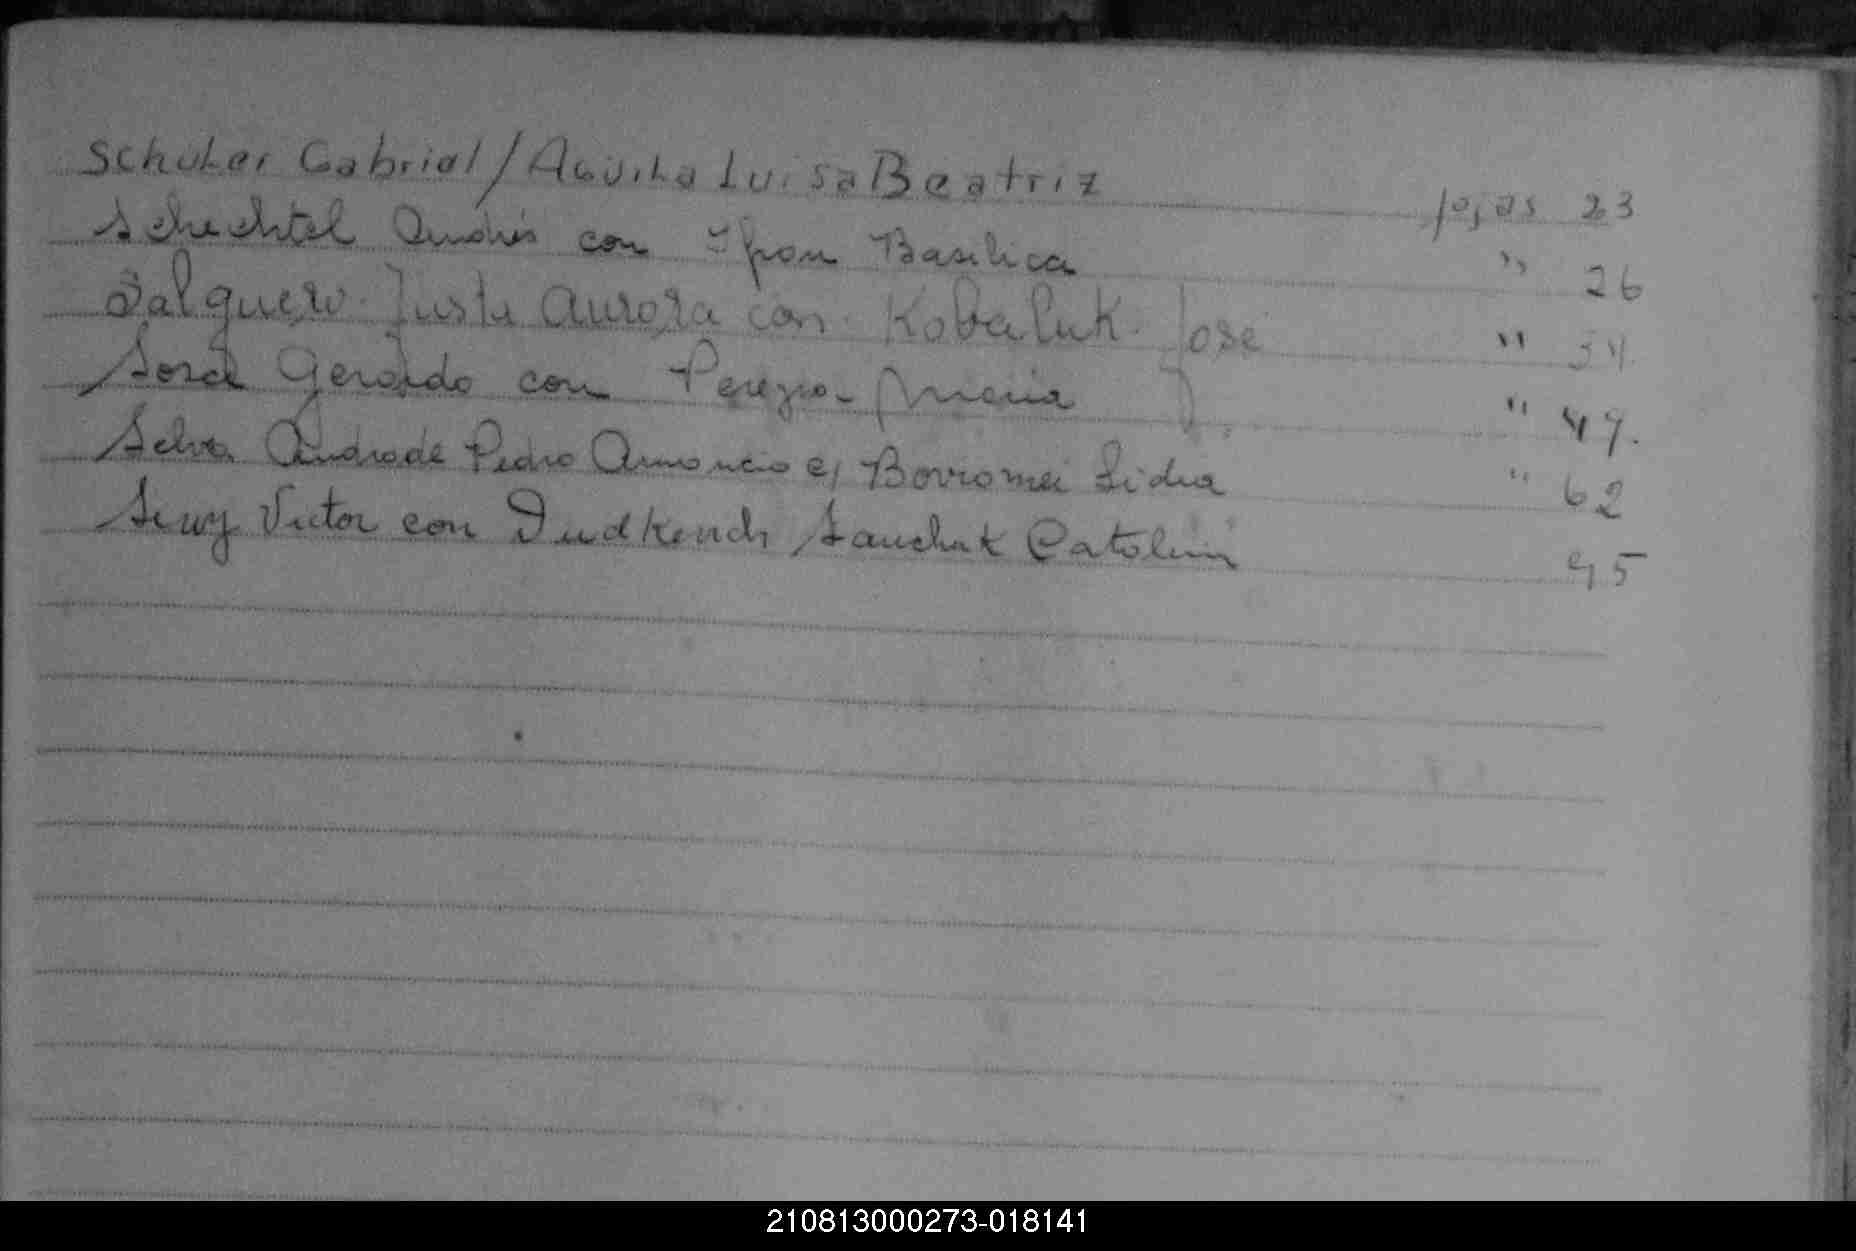 Schuler Gabriel / Aguila Luisa Beatriz fojas 23
Schechtel Andrés con Ifran Basilica " 26
Salguero Justa Aurora con Kobaluk José " 34
Sosa Gerardo con Maria " 47.
Selva Andrade Pedro Amancio c/ Borromei Lidia " 62
Victor con Catalina 95
210813000273-018141